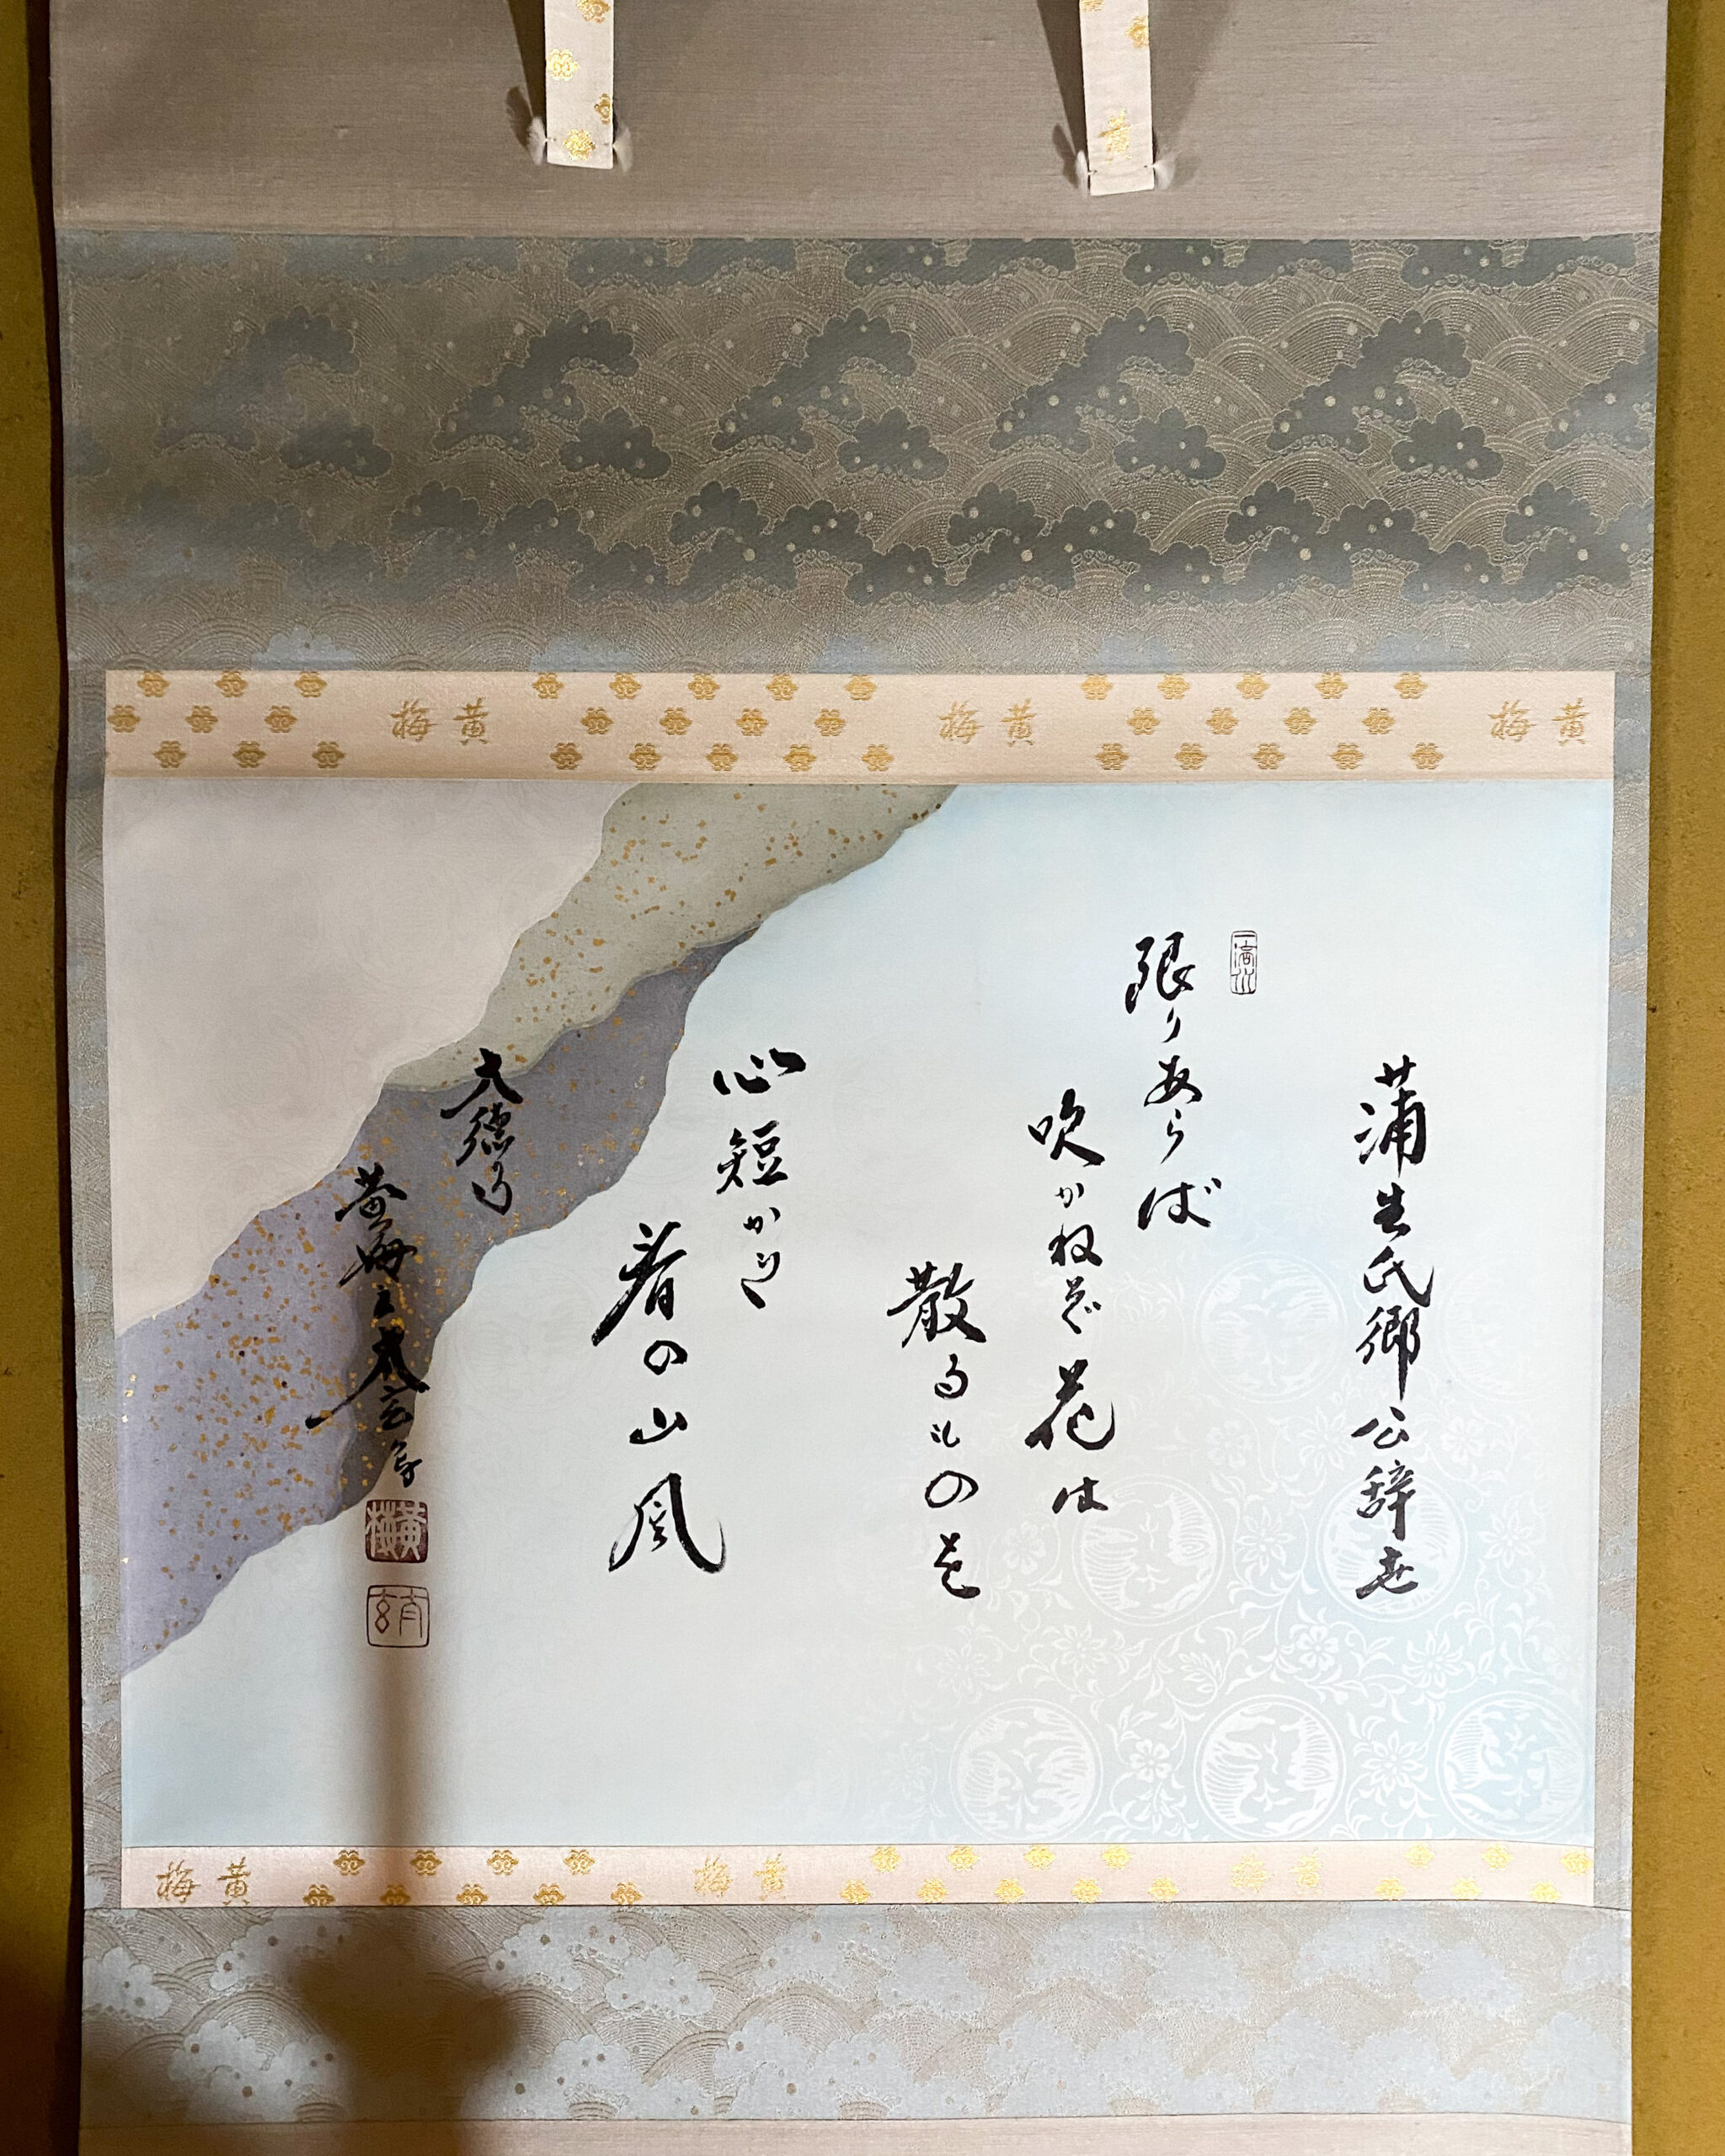 黄
黄梅
黄梅
黄梅
蒲生氏郷公辞世
限りあらば
吹かねど花は
散るものを
心短かき
春の山風
大徳寺
黄梅主太玄書
黄梅
黄梅
黄梅
黄梅